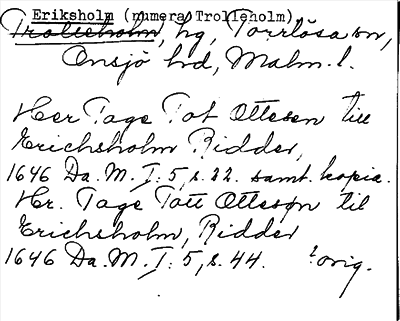 Eriksholm (numera Trolleholm)
Trolleholm, hg, Torrlösa sn,
Onsjö hd, Malm. l.
Her Tage Tot Ottesen till
Erichsholm Ridder,
1646 Da. M. I: 5, s. 22. samt. kopia.
Hr. Tage Tott Ottesøn til
Erichsholm, Ridder
1646 Da. M. I: 5, s. 44. orig.